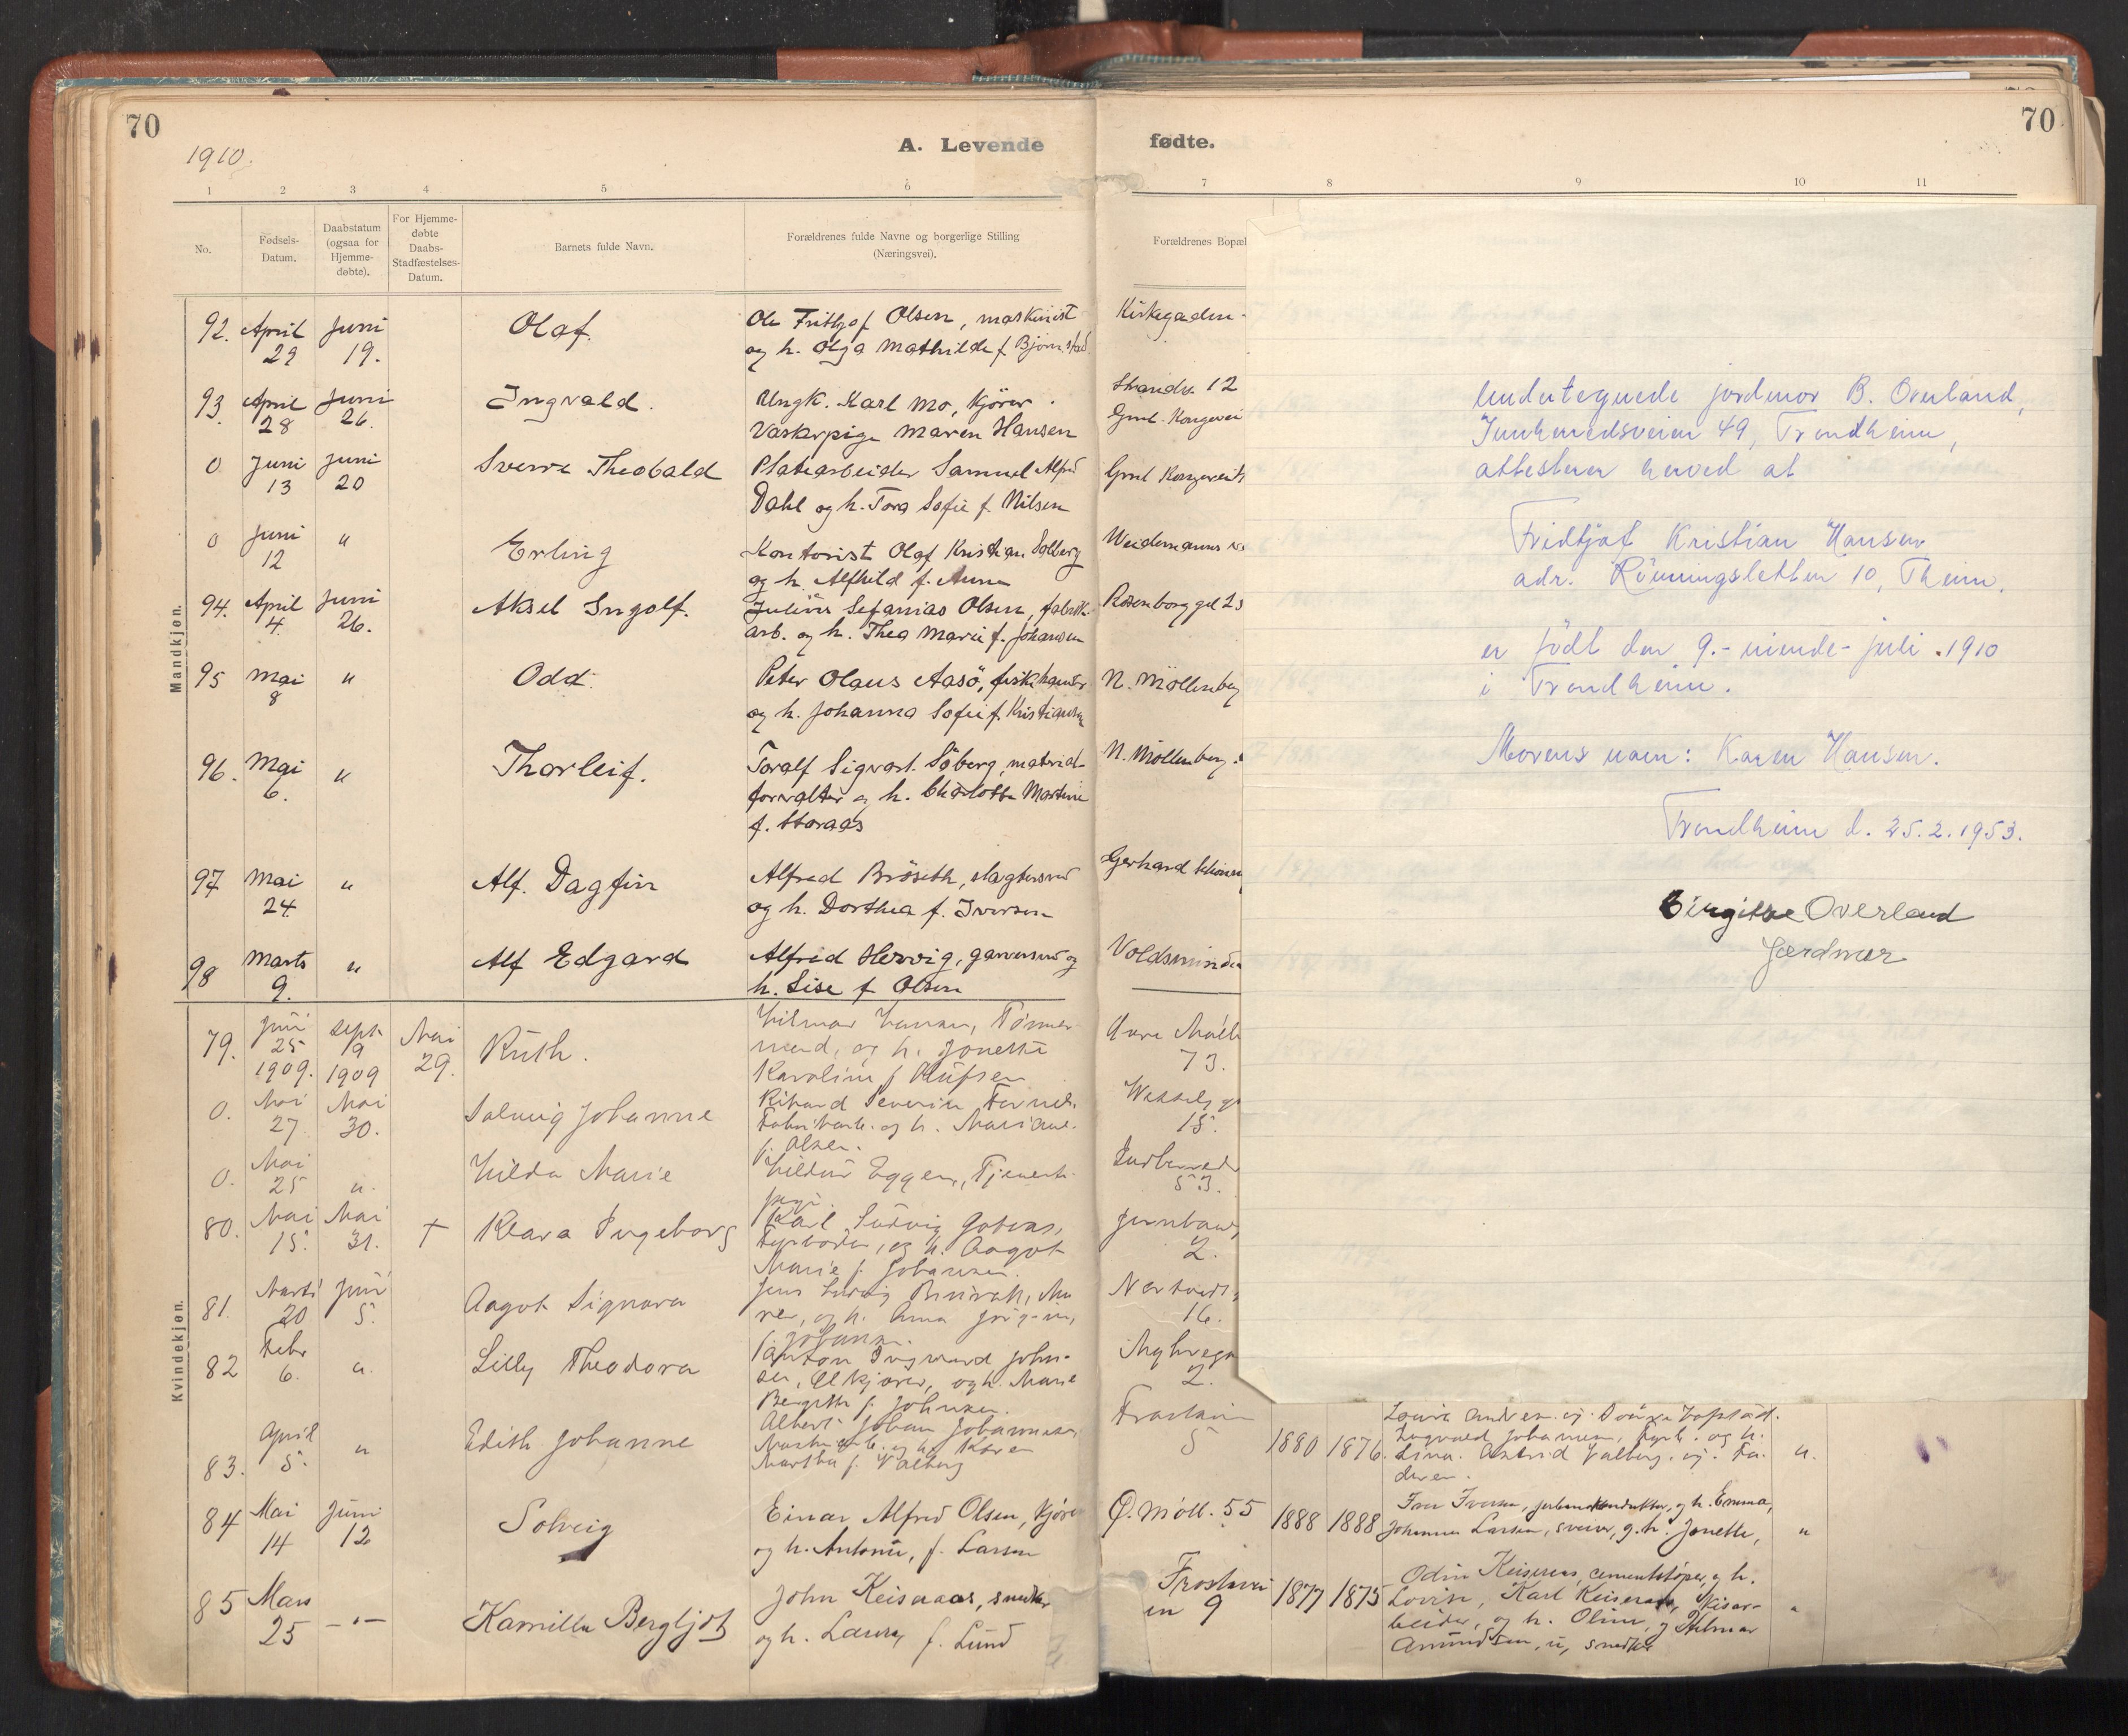 70
1910.
A. Levende
fødte.
70
1 2 3 4 5 6 7 8 9 10 11
No.
Fødsels-
Datum.
Daabstatum
(ogsaa for
Hjemme-
døbte).
For Hjemme-
døbte
Daabs-
Stadfæstelses-
Datum.
Barnets fulde Navn.
Forældrenes fulde Navne og borgerlige Stilling
(Næringsvei).
Forældrenes Bopæl
Mandkjøn.
92. April Juni Olaf. Ole Frithjof Olsen, maskinist Kirkegaden
29 19. og h. Olga Mathilde f. Bjørnstad
93. April Juni Ingvald. Ungk. Karl Mo, kjører. Strandv. 12
28 26. Vaskerpige Maren Hansen Gml. Kongevei
0 Juni Juni Sverre Theobald Platearbeider Samuel Alfred Gml
13 20 Dahl og h. Tora Sofie f. Nilsen
0 Juni " Erling Kontorist Olaf Kristian Solberg
12 og h. Alfhild f. Aune
94. April Juni Aksel Ingolf. Julius Sefanias Olsen, fabrik- Rosenborg
4. 26. arb. og h. Thea Marie f. Johansen
95 Mai " Odd. Peter Olaus Aasö, N. Möllenberg
8 og h. Johanna Sofie f. Kristiansen
96. Mai " Thorleif. Toralf Sigvart Söberg, material- N. Möllenberg
6. forvalter og h. Charlotte Martine
f. Storaas
97 Mai " Alf. Dagfin Alfred Bröseth, slagtersvd Gerhard
24 og h. Dorthea f. Iversen
98 Marts " Alf Edgard Alfred Hervig, garversvd og Voldsminde
9. h. Lise f. Olsen
Kvindekjøn.
79. Juni Sept Mai Ruth. Hilmar Hansen, Tømmer-
25 19 29. mand, og h. Jonette 73.
1909. 1909 Karoline f. Olufsen
0. Mai Mai Solveig Johanne Rikard Severin
27 30. og h. 15.
f. Olsen.
0. Mai Hilda Marie Eggen, Tjeneste-
25 " pige. 53.
80. Mai Mai † Klara Ingeborg Karl Ludvig
15. 31. og h. Aagot 2.
Marie f. Johansen.
81. Marts Juni Aagot Signora Jens Ludvig
20 5. og h. Anna 16.
f. Johansen.
82 Febr Lilly Theodora Anton Ingvard John-
6. " sen, og h. Marie 2.
Bergitte f. Johnsen.
April Edith Johanne Albert Johan Johannesen,
83. 5. " og h. 5 1880 1876.
Martha f. Valberg
84 Mai Juni Solveig Einar Alfred Olsen, kjører Ø. Møll. 55 1888 1888
14 12 og h. Antonie, f. Larsen
85 Mars Kamilla Bergljot John Keiseraas, snedker Frostavei 1877 1875
25 — " — og h. Laura f. Lund en 9
Undertegnede jordmor B. Overland,
Innherredsveien 49, Trondheim,
attesterer herved at
Fridtjof Kristian Hansen
adr. Rönningsletten 10, Theim.
er födt den 9.- niende- juli . 1910
i Trondheim.
Morens navn: Karen Hansen.
Trondheim d. 25.2.1953.
Birgitte Overland
Jordmor
Ingvald Johansen, og h.
Lina. Astrid Valberg. Fa-
deren. "
og h. Emma,
Johannes Larsen, og h. Jonette, "
Odin Keiseraas, cementstøper, og h.
Lovise, Karl Keiseraas,
og h. Oline, og Hilmar
Amundsen, snedker